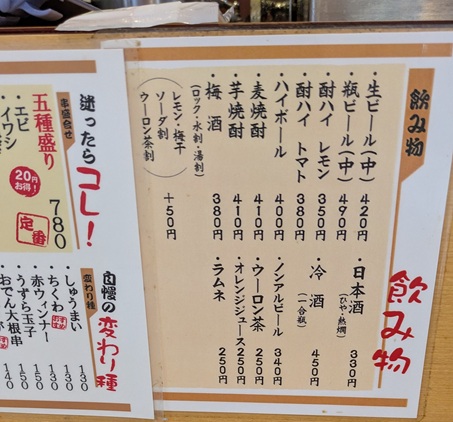 飲み物
飲み物
・生ビール(中) 420円
・瓶ビール(中) 490円
・酎ハイ レモン 350円
・酎ハイ トマト 380円
・ハイボール 400円
・麦焼酎 410円
・芋焼酎 410円
・梅酒 380円
(ロック・水割・湯割)
(レモン・梅干
ソーダ割
ウーロン茶割) +50円
・日本酒 330円
(ひや・熱燗)
・冷酒 450円
(一合瓶)
・ノンアルビール 340円
・ウーロン茶 250円
・オレンジジュース 250円
・ラムネ 250円
迷ったらコレ!
串盛合せ
五種盛り
20円
お得!
780
定番
・エビ
イワシ
自慢の変わり種
変わり種
・しゅうまい 130
・ちくわ 130
・赤ウィンナー 150
・うずら玉子 150
・おでん大根串 140